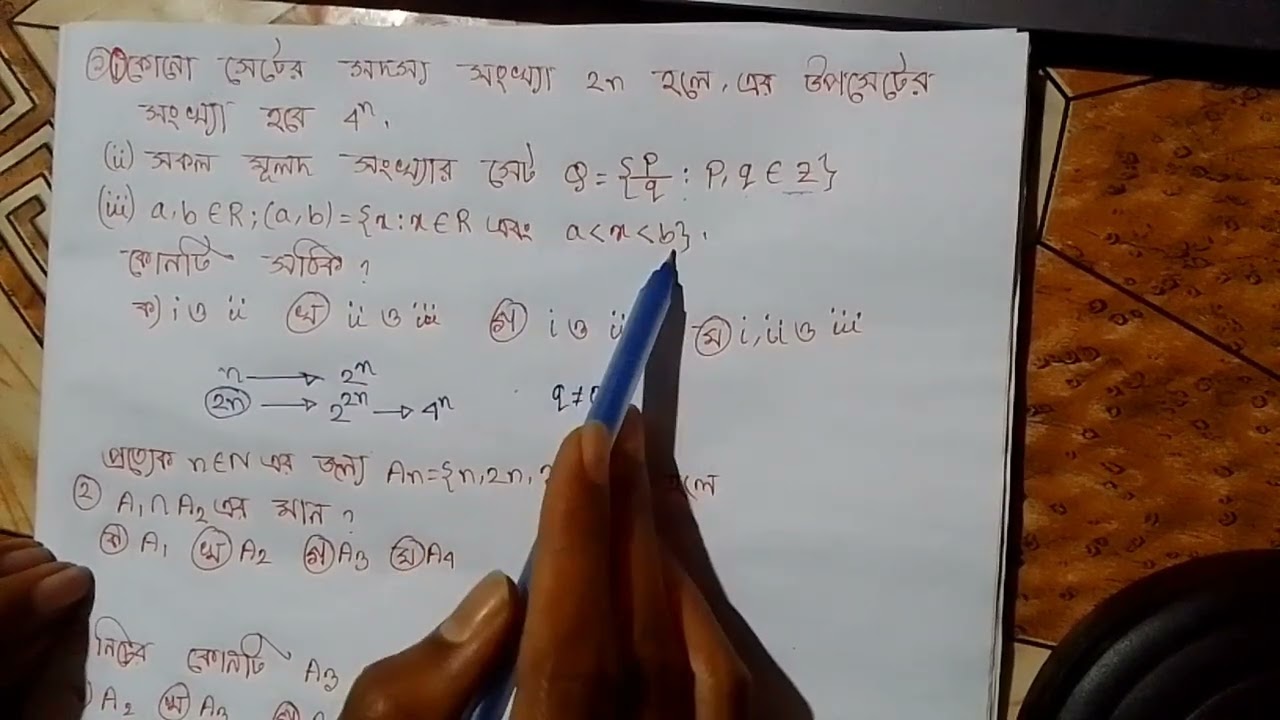 ১ (i) কোনো সেটের সদস্য সংখ্যা 2n হলে, এর উপসেটের
সংখ্যা হবে 4ⁿ.
(ii) সকল মূলদ সংখ্যার সেট Q = {p/q : P, q ∈ Z}
(iii) a, b ∈ R; (a, b) = {x : x ∈ R এবং a < x < b}.
কোনটি সঠিক ?
ক) i ও ii (খ) ii ও iii (গ) i ও (ঘ) i, ii ও iii
n → 2ⁿ
2n → 2²ⁿ → 4ⁿ
q ≠
প্রত্যেক n ∈ N এর জন্য An = {n, 2n, হলে
২ A₁ ∩ A₂ এর মান ?
(ক) A₁ (খ) A₂ (গ) A₃ (ঘ) A₄
নিচের কোনটি A₃
A₂ (খ) A₃ (গ)